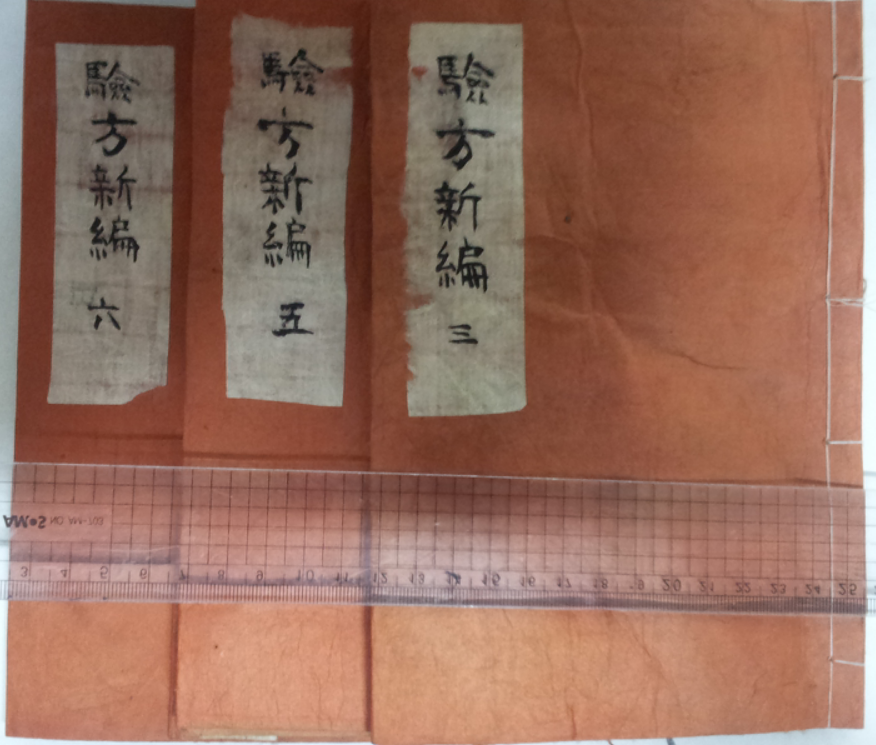 驗方新編 三
驗方新編 五
驗方新編 六
AM●2 NO AM-100
3 4 5 6 7 8 9 10 11 12 13 14 15 16 17 18 19 20 21 22 23 24 25